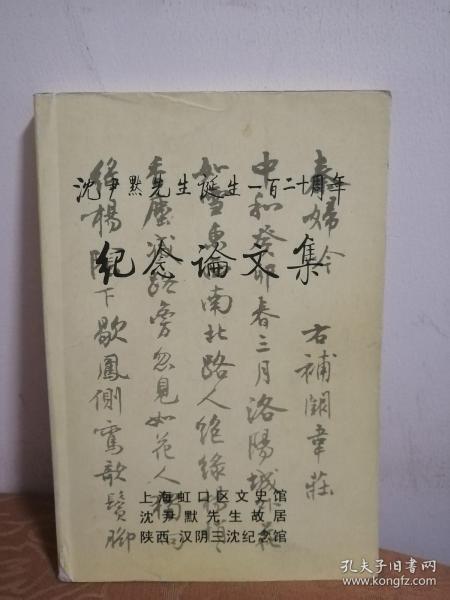 沈尹默先生诞生一百二十周年
纪念論文集
秦婦吟 右補闕韋莊
中和癸卯春三月洛陽城外花
如雪東南北路人絕綠楊悄
香塵滅路旁忽見如花人獨向
綠楊陰下歇鳳側鸞欹鬢腳
上海虹口区文史馆
沈尹默先生故居
陕西汉阴三沈纪念馆
孔夫子旧书网